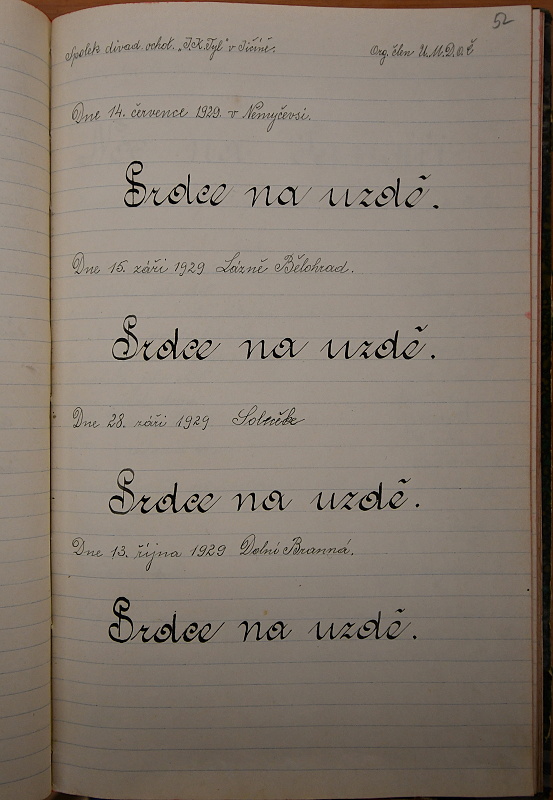 52
Spolek divad. ochot. „J.K.Tyl" v Jičíně. Org. člen Ú.M.D.O.Č
Dne 14. července 1929. v Nemyčevsi.
Srdce na uzdě.
Dne 15. září 1929 Lázně Bělohrad.
Srdce na uzdě.
Dne 28. září 1929
Srdce na uzdě.
Dne 13. října 1929 Dolní Branná.
Srdce na uzdě.